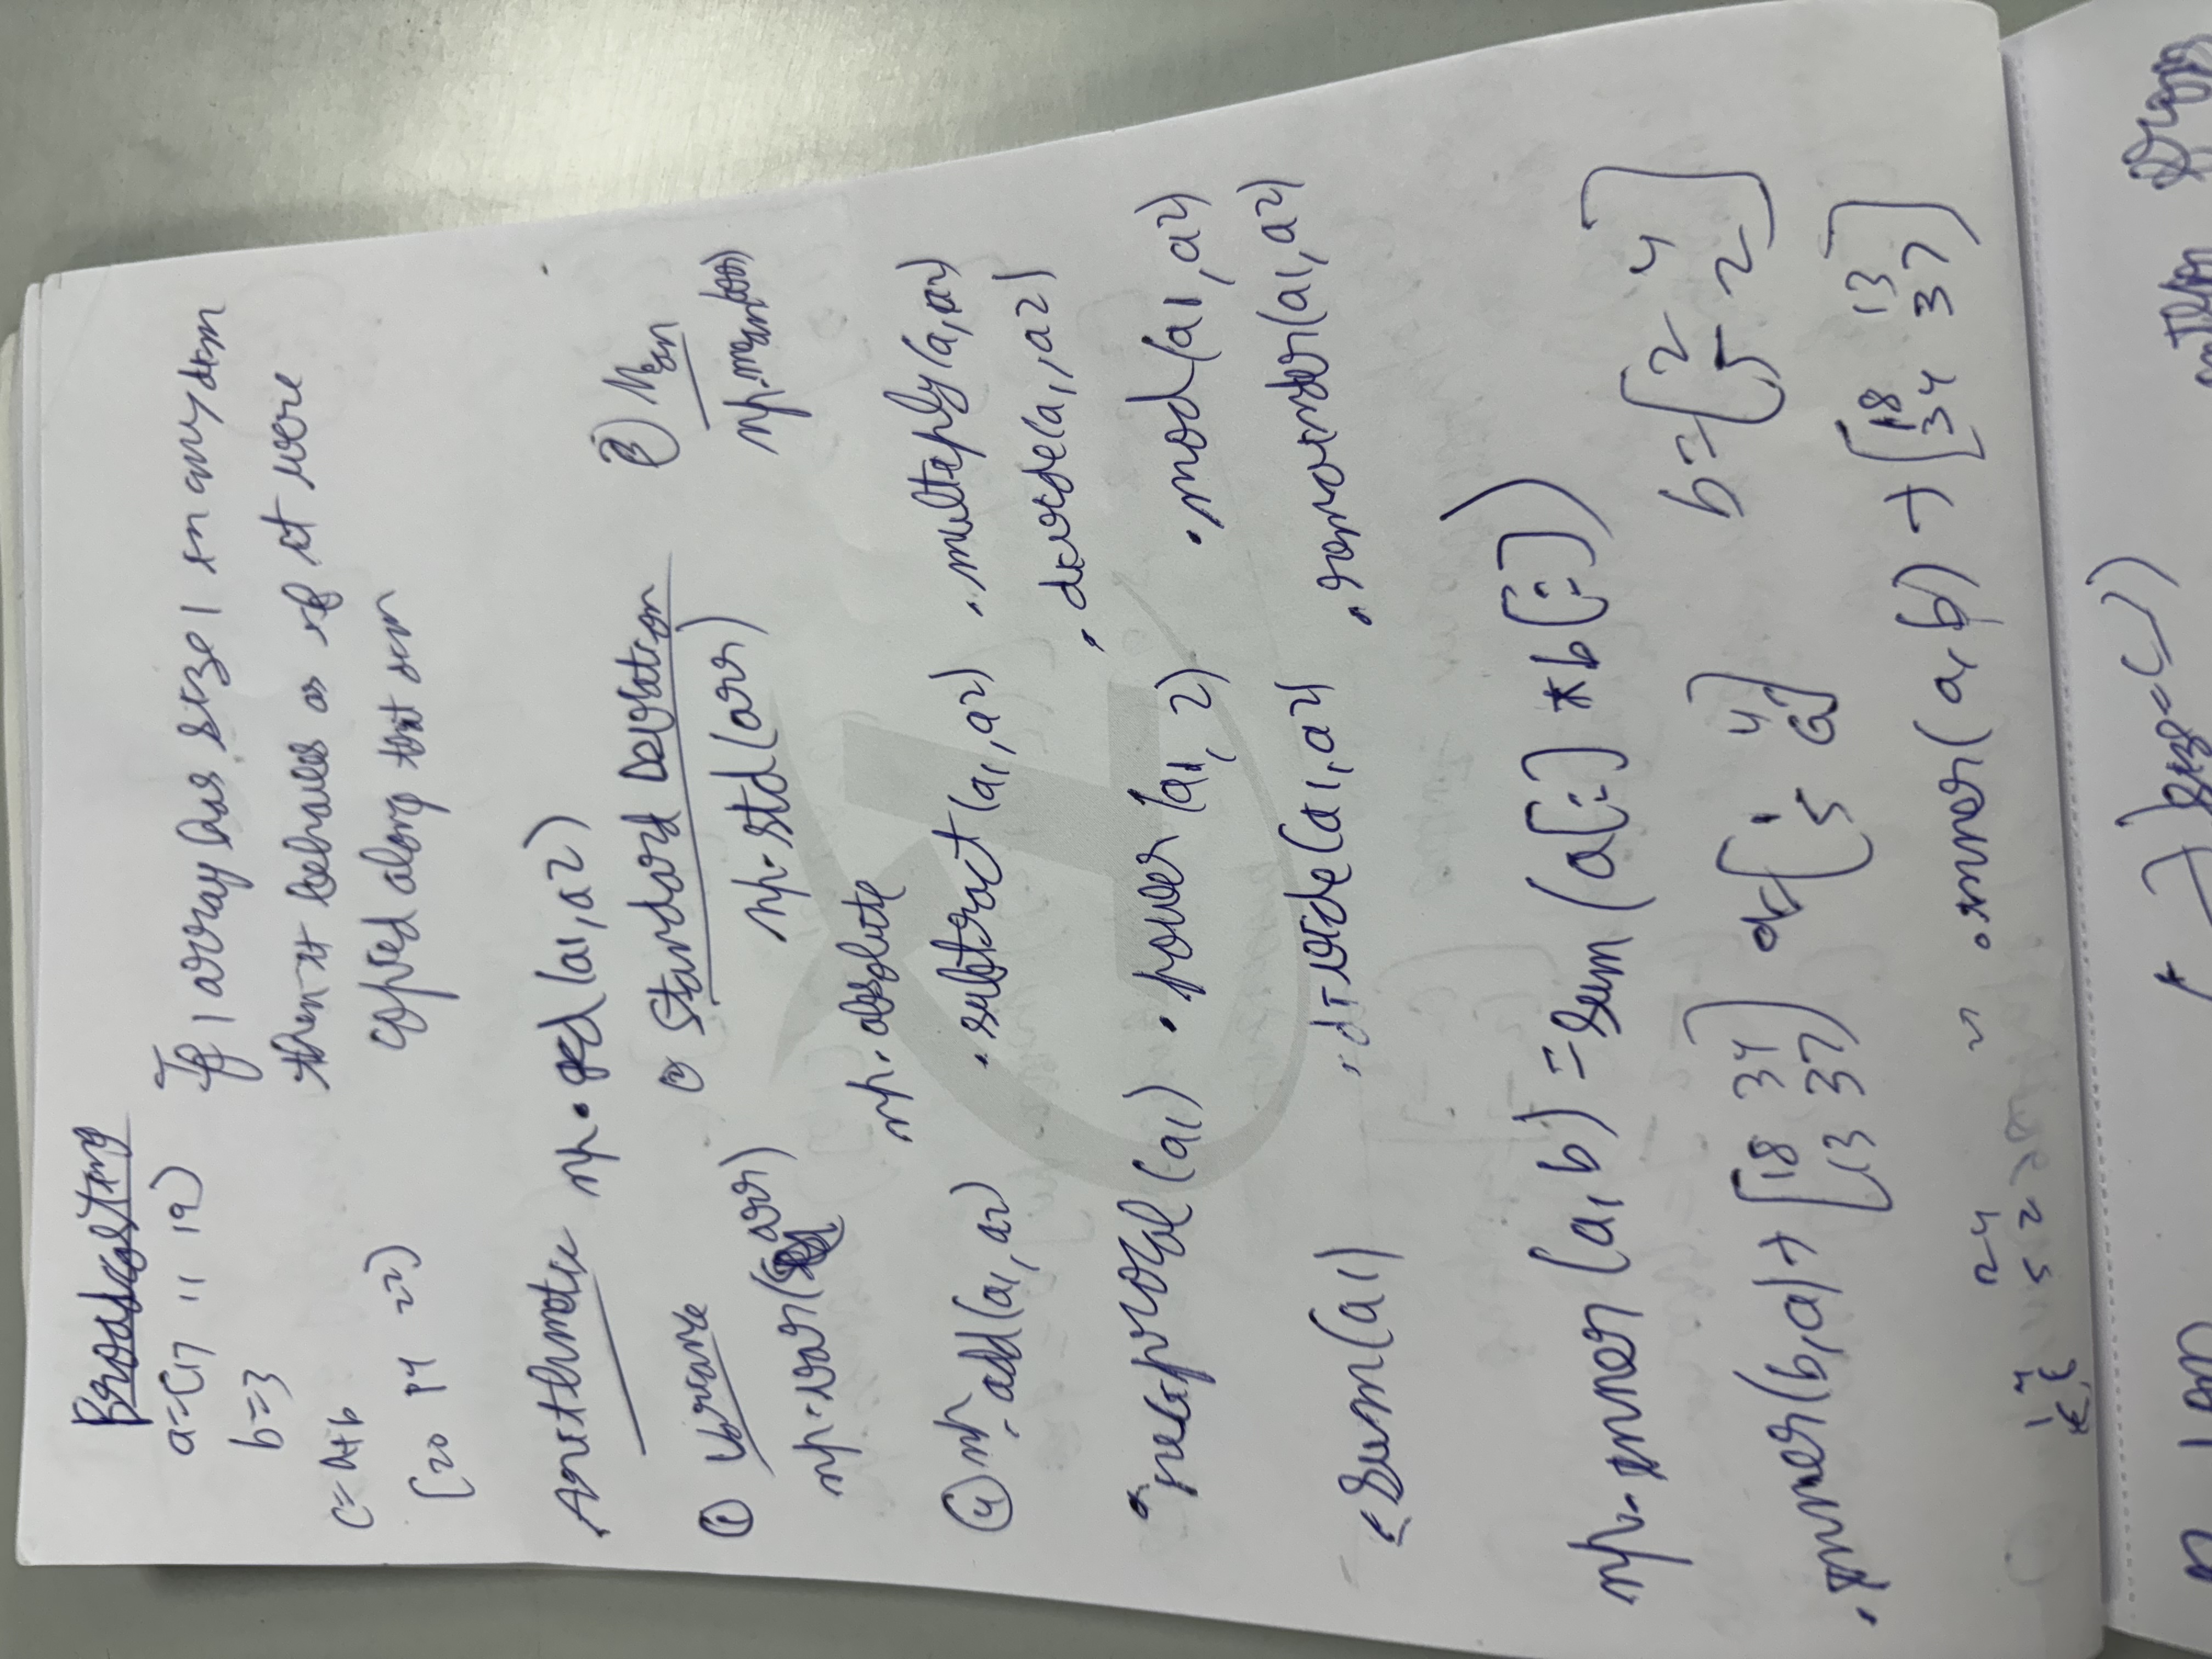 Broadcasting
a=[17 11 19)
b=3
c= a+b
[20 14 22)
If 1 array has size 1 in any dim
then it behaves as if it were
copied along that dim
Arithmetic np.gcd(a1,a2)
① Variance
np.var(arr)
② Standard Deviation
np.std(arr)
③ Mean
np.mean(arr)
np.absolute
④ np.add(a1, a2) .subtract(a1, a2) .multiply(a1, a2)
.divide(a1, a2)
.reciprocal(a1) .power(a1, 2) .mod(a1, a2)
.sum(a1) .divide(a1, a2) .remainder(a1, a2)
np.inner(a, b) = sum(a[:] *b[:])
b=[2 4
5 2]
.inner(b,a)→ [18 34
13 37] a=[1 4
5 6]
.inner(a, b) → [18 13
34 37]
24
1 4 5 2
size=( ))